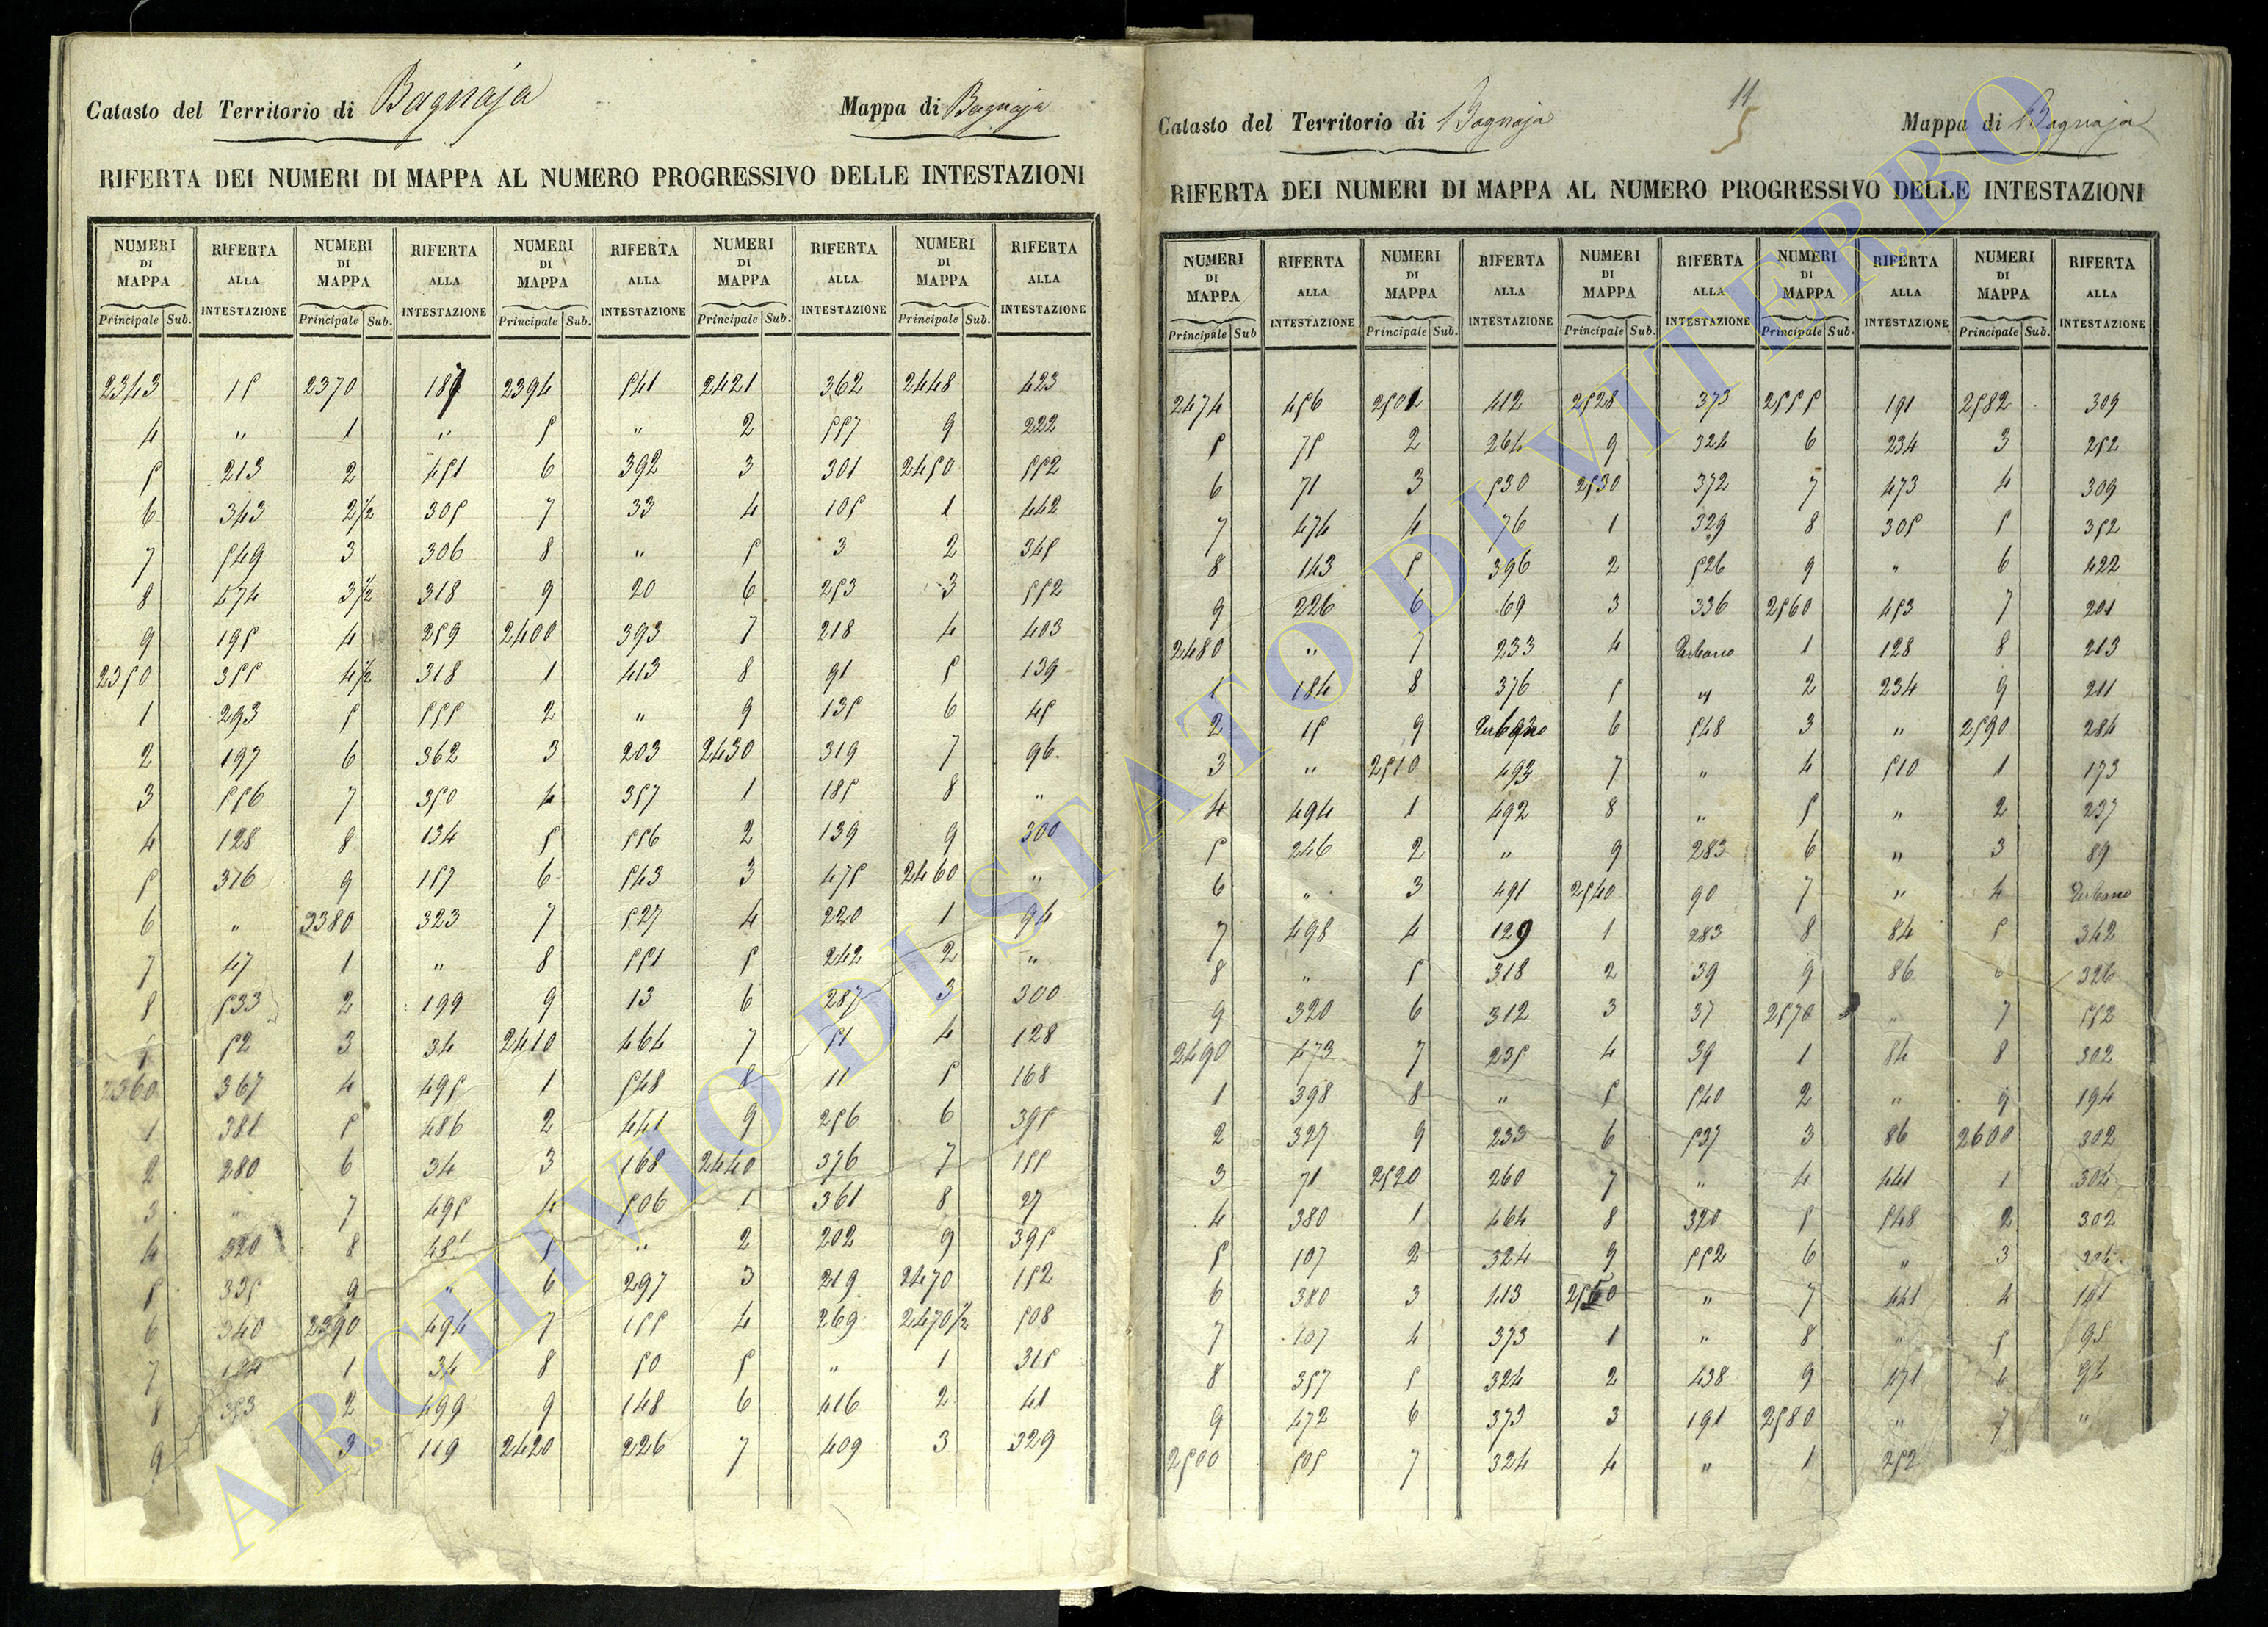 Catasto del Territorio di Bagnaja Mappa di Bagnaja
RIFERTA DEI NUMERI DI MAPPA AL NUMERO PROGRESSIVO DELLE INTESTAZIONI
NUMERI DI MAPPA RIFERTA ALLA INTESTAZIONE NUMERI DI MAPPA RIFERTA ALLA INTESTAZIONE NUMERI DI MAPPA RIFERTA ALLA INTESTAZIONE NUMERI DI MAPPA RIFERTA ALLA INTESTAZIONE NUMERI DI MAPPA RIFERTA ALLA INTESTAZIONE
Principale Sub. Principale Sub. Principale Sub. Principale Sub. Principale Sub.
2343 15 2370 187 2394 541 2421 362 2448 423
4 " 1 " 5 " 2 557 9 222
5 213 2 451 6 392 3 301 2450 552
6 343 2 1/2 305 7 33 4 105 1 442
7 549 3 306 8 " 5 3 2 345
8 474 3 1/2 318 9 20 6 253 3 552
9 195 4 259 2400 393 7 218 4 403
2350 355 4 1/2 318 1 413 8 91 5 139
1 293 5 555 2 " 9 135 6 45
2 197 6 362 3 203 2430 319 7 96
3 556 7 350 4 357 1 185 8 "
4 128 8 134 5 556 2 139 9 300
5 316 9 157 6 543 3 475 2460 "
6 " 2380 323 7 527 4 220 1 94
7 47 1 " 8 551 5 242 2 "
8 533 2 199 9 13 6 287 3 300
52 3 34 2410 464 7 51 4 128
2360 367 4 495 1 548 8 11 5 168
1 381 5 486 2 441 9 256 6 395
2 280 6 34 3 168 2440 376 7 155
3 " 7 495 4 506 1 361 8 27
4 320 8 5 " 2 202 9 395
5 335 9 " 6 297 3 219 2470 152
6 340 2390 494 7 155 4 269 2470 1/2 508
7 1 34 8 50 5 " 1 315
8 353 2 499 9 148 6 416 2 41
9 3 119 2420 226 7 409 3 329
11
5
Catasto del Territorio di Bagnaja Mappa di Bagnaja
RIFERTA DEI NUMERI DI MAPPA AL NUMERO PROGRESSIVO DELLE INTESTAZIONI
NUMERI DI MAPPA RIFERTA ALLA INTESTAZIONE NUMERI DI MAPPA RIFERTA ALLA INTESTAZIONE NUMERI DI MAPPA RIFERTA ALLA INTESTAZIONE NUMERI DI MAPPA RIFERTA ALLA INTESTAZIONE NUMERI DI MAPPA RIFERTA ALLA INTESTAZIONE
Principale Sub Principale Sub. Principale Sub. Principale Sub. Principale Sub.
2474 456 2501 412 2528 373 2555 191 2582 309
5 75 2 264 9 324 6 234 3 252
6 71 3 530 2530 372 7 473 4 309
7 474 4 76 1 329 8 305 5 352
8 143 5 396 2 526 9 " 6 422
9 226 6 69 3 336 2560 453 7 201
2480 " 7 233 4 Urbano 1 128 8 213
1 184 8 376 5 " 2 234 9 211
2 15 9 Urbano 6 548 3 " 2590 284
3 " 2510 493 7 " 4 510 1 173
4 494 1 492 8 " 5 " 2 237
5 246 2 " 9 283 6 " 3 89
6 " 3 491 2540 90 7 " 4 Urbano
7 498 4 129 1 283 8 84 5 342
8 " 5 318 2 39 9 86 6 326
9 320 6 312 3 37 2570 " 7 552
2490 473 7 235 4 39 1 84 8 302
1 398 8 " 5 540 2 " 9 194
2 327 9 233 6 537 3 86 2600 302
3 71 2520 260 7 " 4 441 1 304
4 380 1 464 8 320 5 548 2 302
5 107 2 324 9 552 6 " 3
6 380 3 413 2550 " 7 441 4
7 107 4 373 1 " 8 " 5 95
8 357 5 324 2 438 9 471 6 94
9 472 6 373 3 191 2580 " 7 "
2500 505 7 324 4 " 1 252
ARCHIVIO DI STATO DI VITERBO